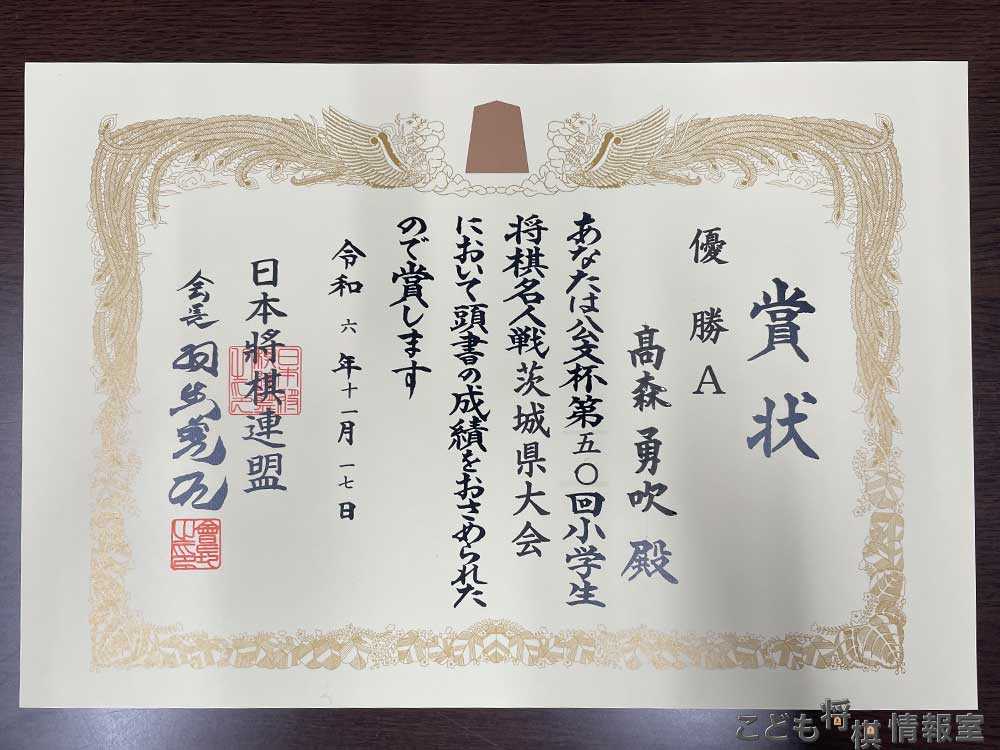 賞状
優勝A
髙森勇吹殿
あなたは公文杯第五〇回小学生
将棋名人戦茨城県大会
において頭書の成績をおさめられた
ので賞します
令和六年十一月一七日
日本將棋連盟
会長 羽生善治
會長之印
こども将棋情報室